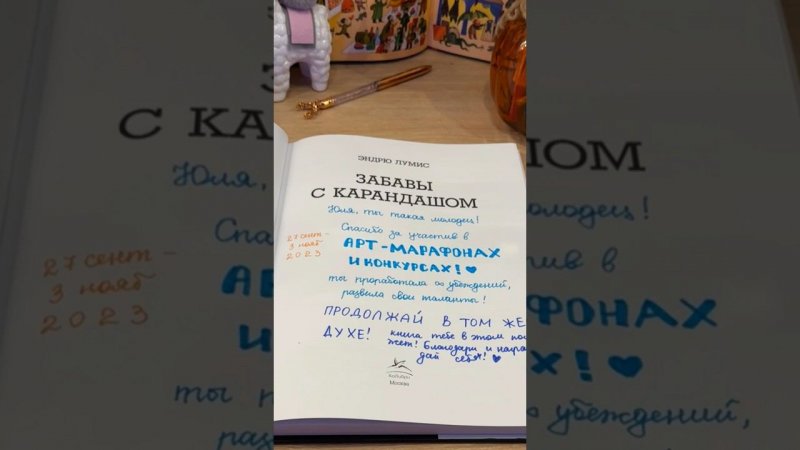 ЭНДРЮ ЛУМИС
ЗАБАВЫ
С КАРАНДАШОМ
Юля, ты такая молодец!
Спасибо за участие в
АРТ-МАРАФОНАХ
И КОНКУРСАХ!
27 сент -
3 нояб
2023
ты проработала убеждений,
развила свои таланты!
ПРОДОЛЖАЙ В ТОМ ЖЕ
ДУХЕ! книга тебе в этом
жет! Благодари и
дай себя!
КоЛибри
Москва